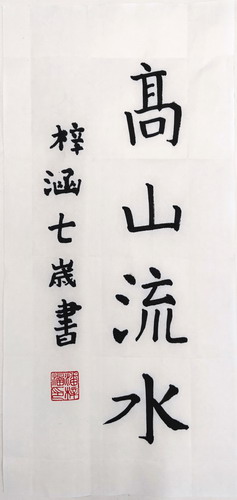 髙山流水
梓涵七歲書